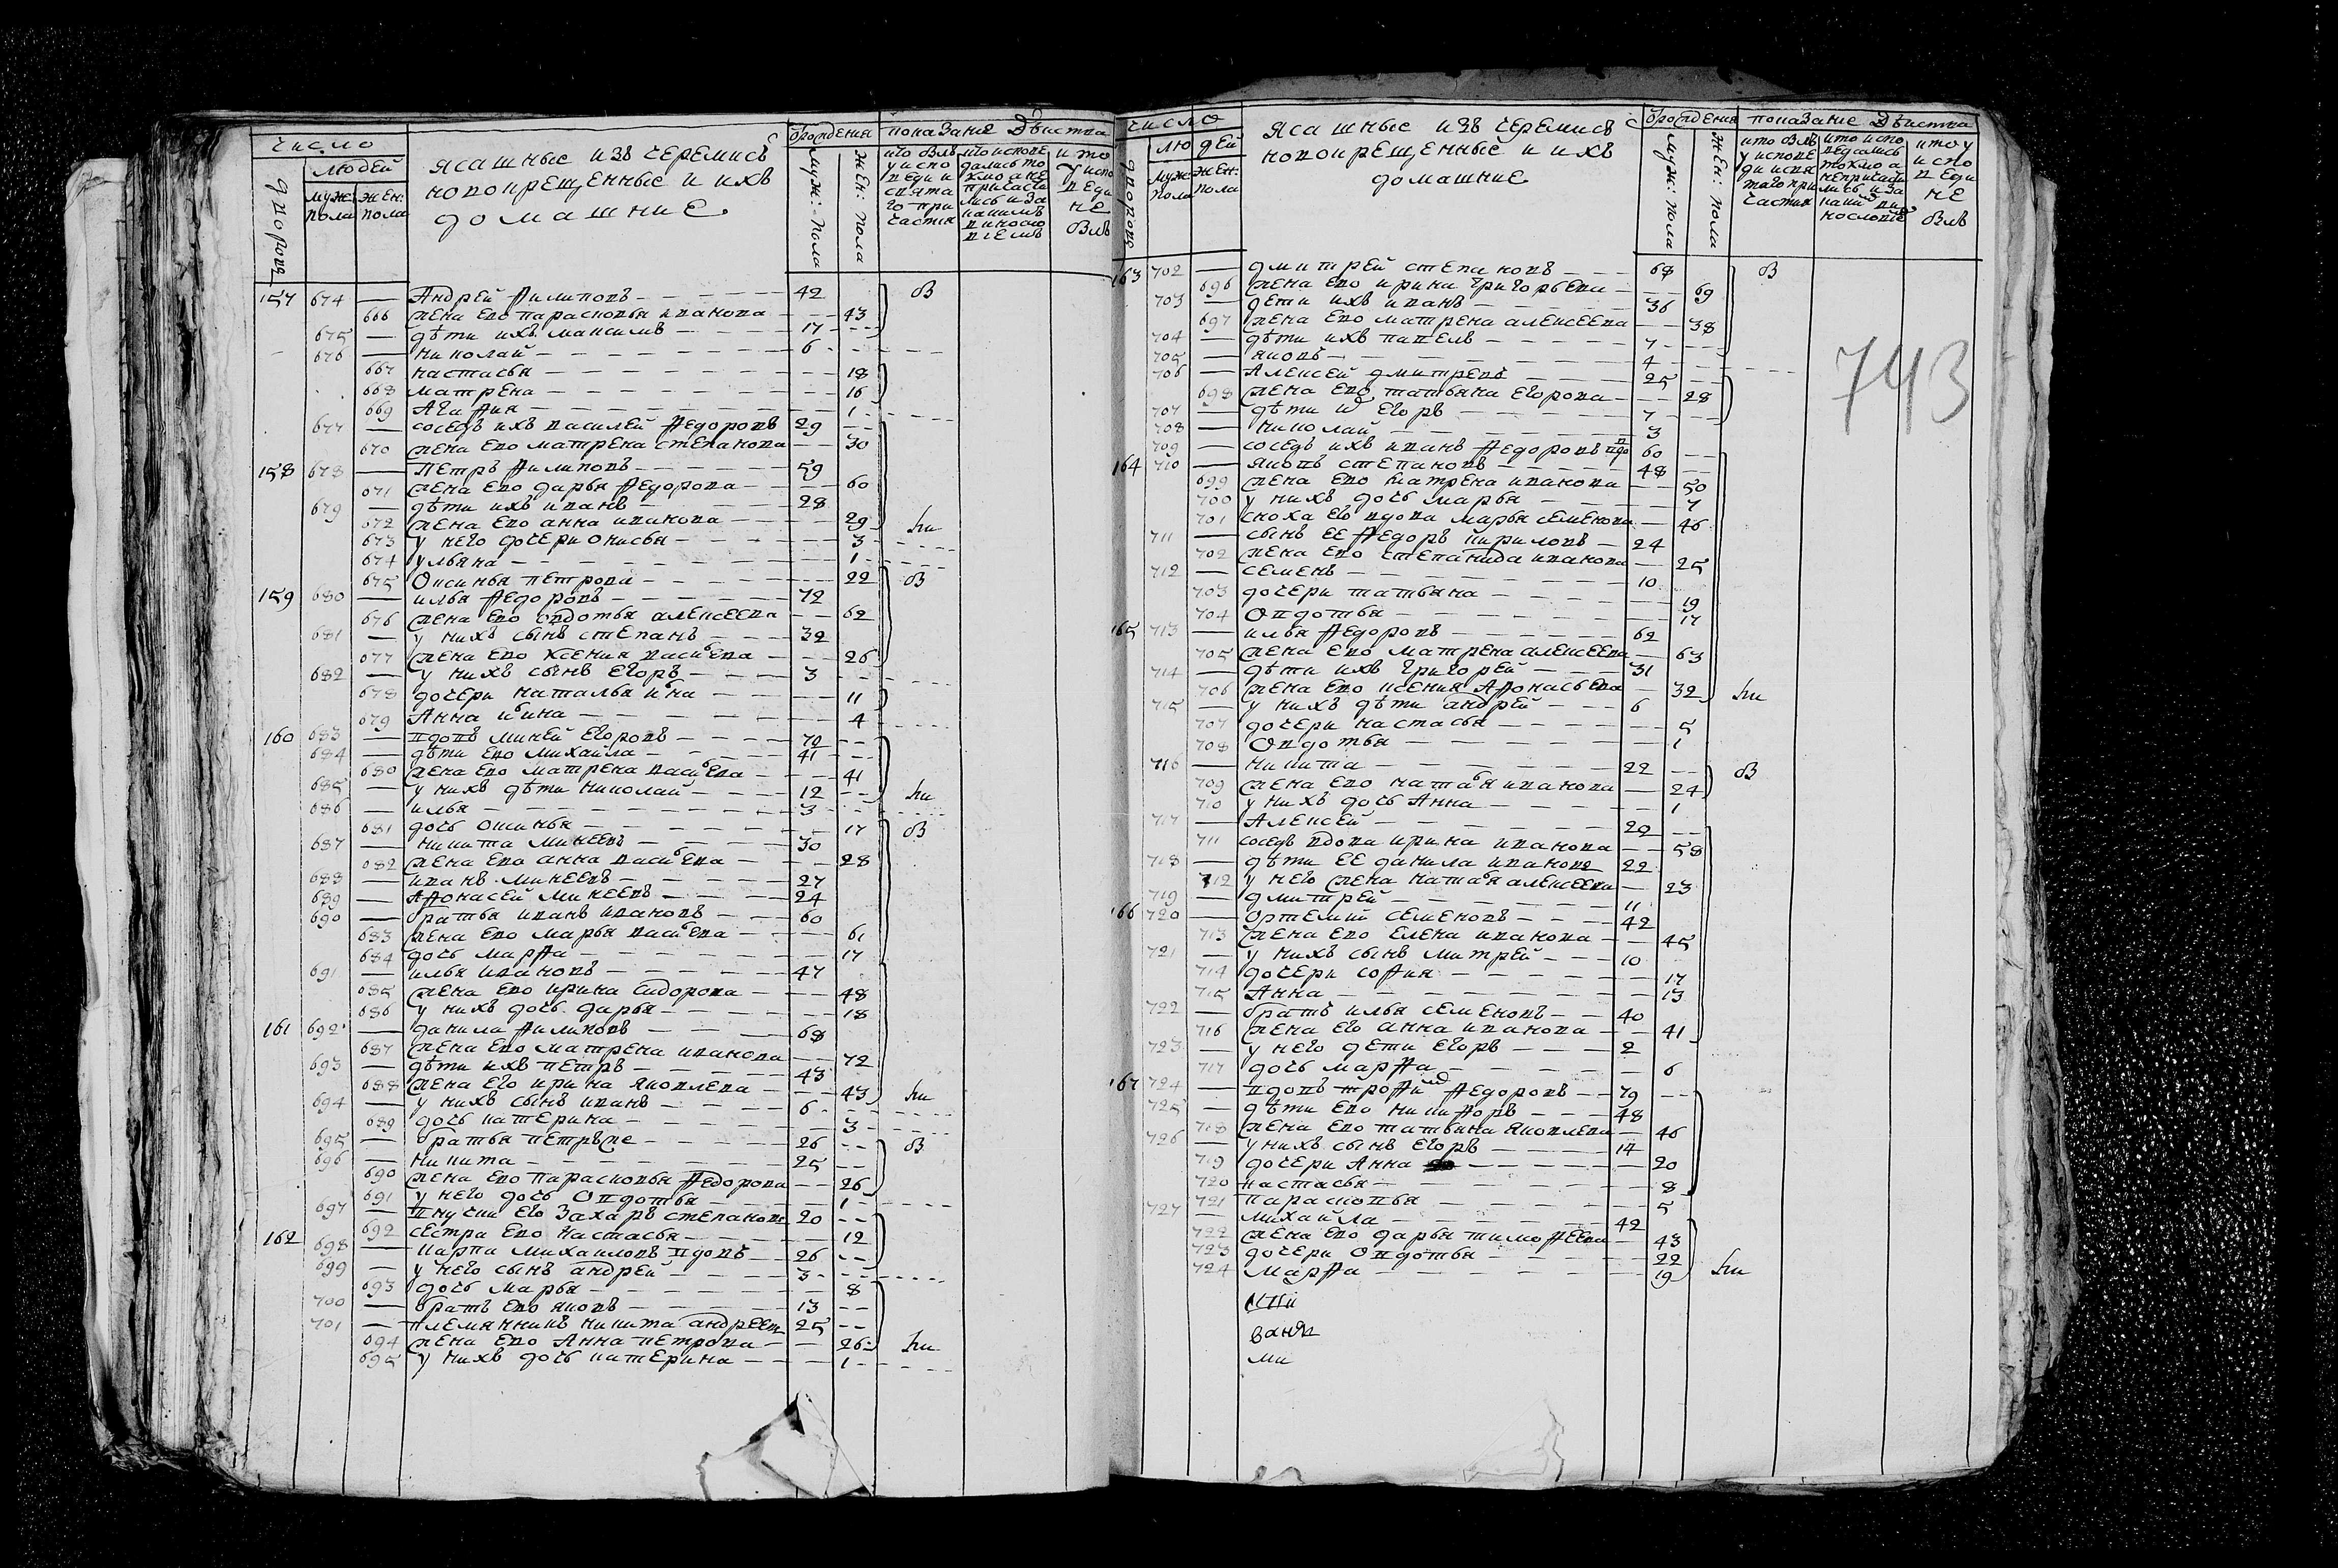 число
людей
дворовъ
муж: пола
жен: пола
ясашные изъ черемисъ
новокрещенные и ихъ
домашние
Ѿрождения
муж: пола
жен: пола
показание действа
кто былъ у исповеди и святаго причастия
кто исповедались токмо а не причастились и за какимъ винословиемъ
кто у исповеди не былъ
157 674 — Андрей Филиповъ 42 бы
666 жена ево парасковья иванова 43
675 — дѣти ихъ максимъ 17
676 — николай 6
667 настасья 18
668 матрена 16
669 Агафия 1
677 — соседъ ихъ василей Федоровъ 29
670 жена ево матрена степанова 30
158 678 — Петръ Филиповъ 59
671 жена ево дарья Федорова 60
679 — дѣти ихъ иванъ 28
672 жена ево анна иванова 29 ли
673 у него дочери онисья 3
674 ульяна 1
675 Оксинья петрова 22 бы
159 680 — илья Федоровъ 72
676 жена ево овдотья алексеева 62
681 — у нихъ сынъ степанъ 32
677 жена ево ксения васильева 26
682 — у нихъ сынъ егоръ 3
678 дочери наталья 11
679 Анна 4
160 683 — вдовъ миней егоровъ 70
684 — дѣти ево михайла 41
680 жена ево матрена васильева 41
685 — у нихъ дѣти николай 12 ли
686 — илья 3
681 дочь оксинья 17 бы
687 — никита минеевъ 30
682 жена ево анна васильева 28
688 — иванъ минеевъ 27
689 — Афонасей минеевъ 24
690 — братья иванъ ивановъ 60
683 жена ево марья васильева 61
684 дочь марфа 17
691 — илья ивановъ 47
685 жена ево ирина сидорова 48
686 у нихъ дочь дарья 18
161 692 — данила Филиповъ 68
687 жена ево матрена иванова 72
693 — дѣти ихъ петръ 43
688 жена его ирина яковлева 43 ли
694 — у нихъ сынъ иванъ 6
689 дочь катерина 3
695 — братья петръ же 26 бы
696 — никита 25
690 жена ево парасковья Федорова 26
691 у него дочь Овдотья 1
697 — внучки его Захаръ степановъ 20
692 сестра ево настасья 12
162 698 — карпъ михаиловъ вдовъ 26
699 — у него сынъ андрей 3
693 дочь марья 8
700 — братъ ево яковъ 13
701 — племянникъ никита андреевъ 25
694 жена ево Анна петрова 26 ли
695 у нихъ дочь катерина 1
число
людей
дворовъ
муж: пола
жен: пола
ясашные изъ черемисъ
новокрещенные и ихъ
домашние
Ѿрождения
муж: пола
жен: пола
показание действа
кто былъ у исповеди и святаго причастия
кто исповедались токмо а не причастились и за каким винословие
кто у исповеди не былъ
743
163 702 — дмитрей степановъ 68 бы
696 жена ево ирина григорьева 69
703 — дети ихъ иванъ 36
697 жена ево матрена алексеева 38
704 — дѣти ихъ павелъ 7
705 — яковъ 4
706 — Алексей дмитревъ 25
698 жена ево татьяна егорова 28
707 — дѣти их егоръ 7
708 — николай 3
709 — соседъ ихъ иванъ Федоровъ вдо 60
164 710 — яковъ степановъ 48
699 жена ево матрена иванова 50
700 у нихъ дочь марья 7
701 сноха его вдова марья семенова 46
711 — сынъ ее Федоръ кириловъ 24
702 жена ево степанида иванова 25
712 — семенъ 10
703 дочери татьяна 19
704 Овдотья 17
165 713 — илья Федоровъ 62
705 жена ево матрена алексеева 63
714 — дѣти ихъ григорей 31
706 жена ево ксения Афонасьева 32 ли
715 — у нихъ дѣти андрей 6
707 дочери настасья 5
708 Овдотья 1
716 — никита 22 бы
709 жена ево наталья иванова 24
710 у нихъ дочь Анна 1
717 — Алексей 20
711 соседъ вдова ирина иванова 58
718 — дѣти ее данила ивановъ 22
712 у него жена наталья алексеева 23
719 — дмитрей 11
166 720 — ортемий семеновъ 42
713 жена ево елена иванова 45
721 — у нихъ сынъ митрей 10
714 дочери софия 17
715 Анна 13
722 — братъ илья семеновъ 40
716 жена его анна иванова 41
723 — у него дети егоръ 2
717 дочь марфа 6
167 724 — вдовъ трофим Федоровъ 79
725 — дѣти ево никифоръ 48
718 жена ево татьяна яковлева 46
726 — у нихъ сынъ егоръ 14
719 дочери Анна 20
720 настасья 8
721 парасковья 5
727 — михайла 42
722 жена ево дарья тимофеева 43
723 дочери Овдотья 22
724 марфа 19 ли
ми